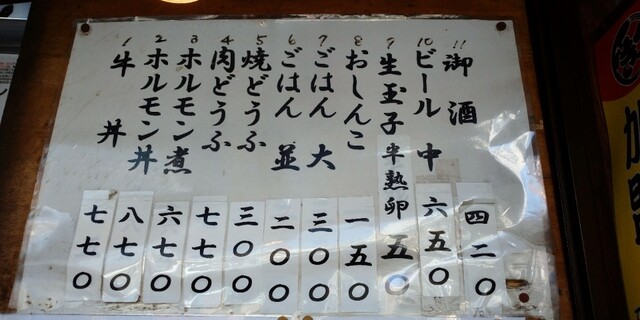 1 牛丼 七七〇
2 ホルモン丼 八七〇
3 ホルモン煮 六七〇
4 肉どうふ 七七〇
5 焼どうふ 三〇〇
6 ごはん 並 二〇〇
7 ごはん 大 三〇〇
8 おしんこ 一五〇
9 生玉子 半熟卵 五〇
10 ビール 中 六五〇
11 御酒 四二〇